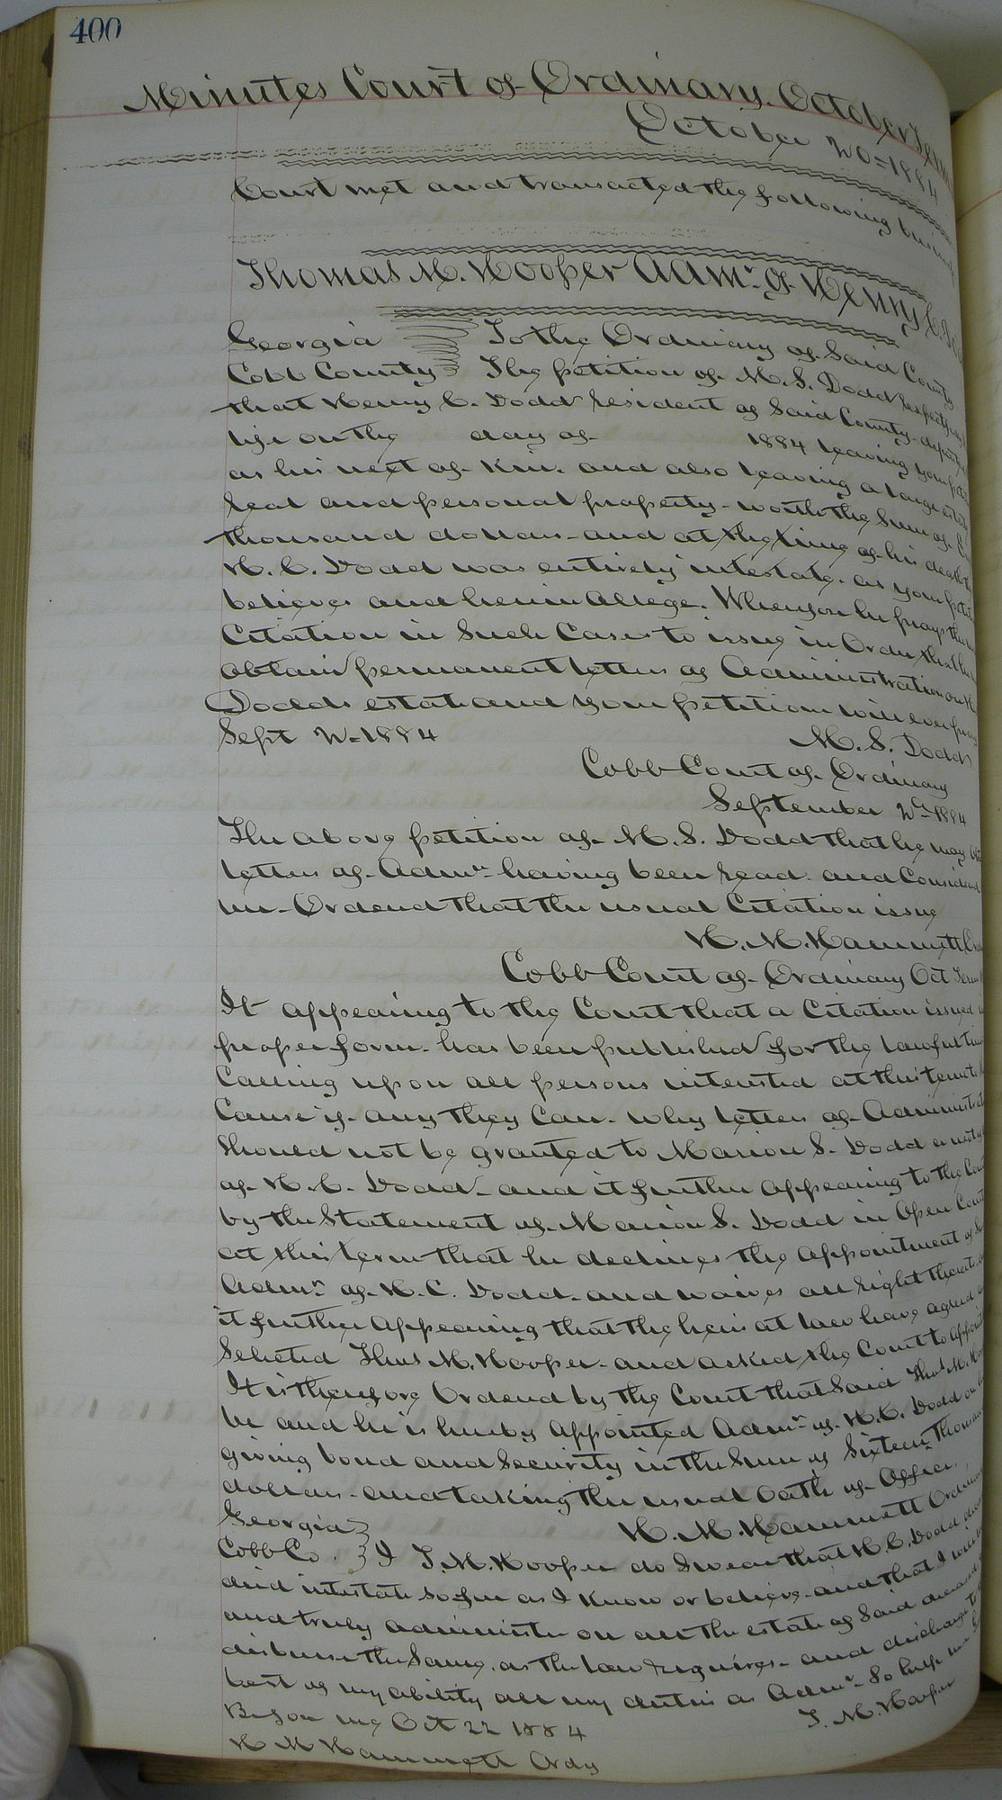 400
Minutes Court of Ordinary. October Term
October 20=1884
Court met and transacted the following
Thomas M. Hooper Admr. of Henry C.
Georgia To the Ordinary of Said County
Cobb County The petition of M. S. Dodd
that Henry C. Dodd resident of Said County
life on the day of 1884 leaving your
as his next of Kin. and also leaving a large
real and personal property - worth the Sum of
thousand dollars - and at the time of his death
H. C. Dodd was entirely intestate. as your
believes and herein Allege. Wherefore he prays
Citation in Such Cases to issue in Order that he
obtain permanent letters of Administration on
Dodds estate and your petitioner will ever pray
Sept 2-1884 M. S. Dodd
Cobb Court of Ordinary
September 2nd 1884
The above petition of M. S. Dodd that he may
letters of Admr. having been read and Considered
- Ordered that the usual Citation issue
H. M. Hammett
Cobb Court of Ordinary Oct Term
It appearing to the Court that a Citation issued
proper form - has been published for the lawful time
Calling upon all persons interested at this term to
Cause if any they Can. why letters of Administration
Should not be granted to Marion S. Dodd
of H. C. Dodd - and it further Appearing to the
by the Statement of Marion S. Dodd in Open Court
at this term that he declines the appointment of
Admr. of H. C. Dodd - and waives all right
it further Appearing that the heirs at law have agreed
Selected Thos M. Hooper - and asked the Court to
It is therefore Ordered by the Court that Said Thos M.
be and he is hereby appointed Admr. of H. C. Dodd on
giving bond and Security in the Sum of Sixteen Thousand
dollars - and taking the usual Oath of Office.
Georgia H. M. Hammett
Cobb Co. I T. M. Hooper do Swear that H. C. Dodd
died intestate so far as I Know or believe - and that I will
and truly administer on all the estate of Said deceased
disburse the Same. as the law requires - and discharge
best of my ability all my duties as Admr. So help me
Before me Oct 22 1884 T. M. Hooper
H M Hammett Ordy